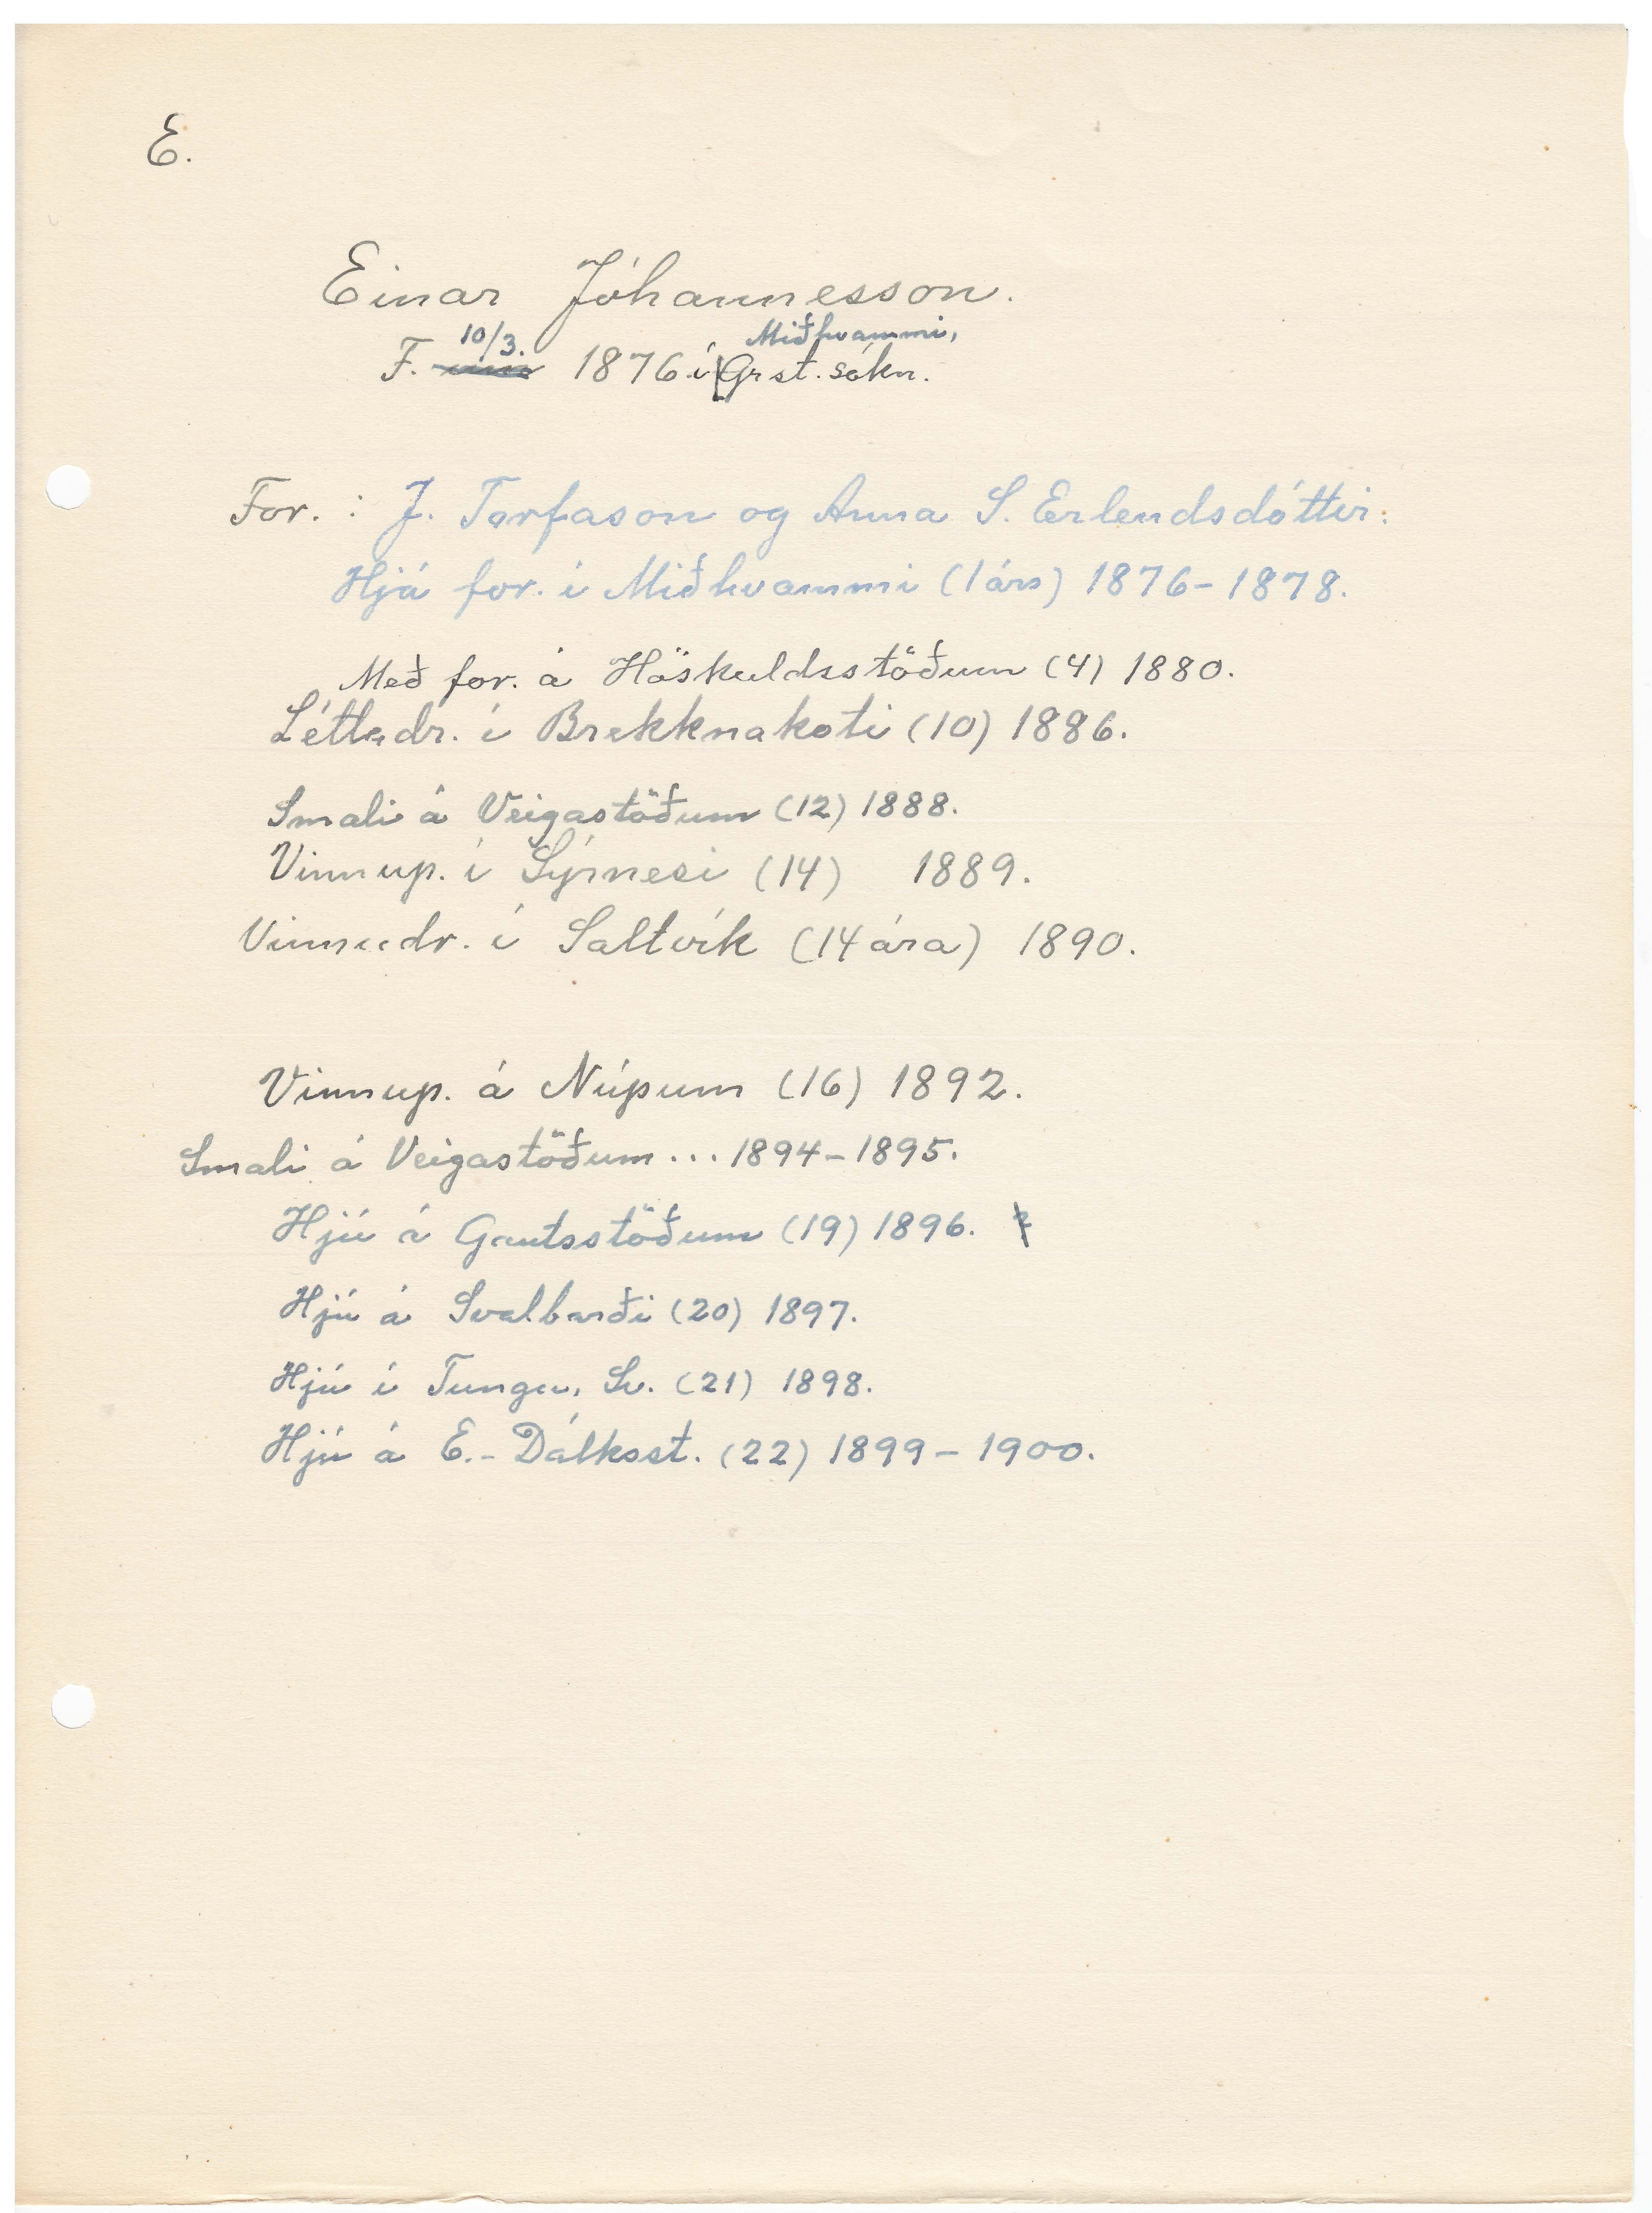 E.
Einar Jóhannesson.
F. 10/3. 1876 í Miðhvammi, Grst. sókn.
For. : J. Torfason og Anna S. Erlendsdóttir.
Hjá for. í Miðhvammi (1 árs) 1876-1878.
Með for. á Höskuldsstöðum (4) 1880.
Léttadr. í Brekknakoti (10) 1886.
Smali á Veigastöðum (12) 1888.
Vinnup. í Sýrnesi (14) 1889.
Vinnudr. í Saltvík (14 ára) 1890.
Vinnup. á Núpum (16) 1892.
Smali á Veigastöðum ... 1894-1895.
Hjú á Gautsstöðum (19) 1896.
Hjú á Svalbarði (20) 1897.
Hjú í Tungu, Sv. (21) 1898.
Hjú á E.-Dálksst. (22) 1899-1900.